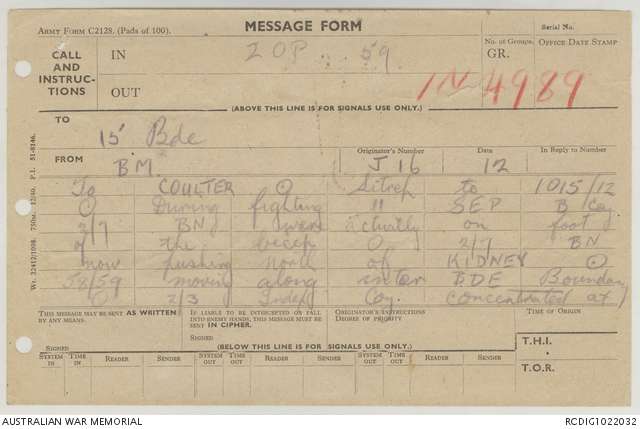 ARMY FORM C2128. (Pads of 100).
MESSAGE FORM
Serial No.
CALL AND INSTRUCTIONS
IN
ZOP 59
No. of Groups.
GR.
OFFICE DATE STAMP
OUT
IN 4989
(ABOVE THIS LINE IS FOR SIGNALS USE ONLY.)
TO
15 Bde
FROM
B.M.
Originator's Number
J 16
Date
12
In Reply to Number
To COULTER O Sitrep to 1015/12
O During fighting 11 SEP B Coy
2/7 BN were actually on foot
of the O 2/7 BN
now pushing north of KIDNEY O
58/59 moving along inter BDE Boundary
O 2/3 Indep Coy. concentrated at
Wt. 22412/1098. 750m. 12/40. P.I. 51-8146.
THIS MESSAGE MAY BE SENT AS WRITTEN BY ANY MEANS.
IF LIABLE TO BE INTERCEPTED OR FALL INTO ENEMY HANDS, THIS MESSAGE MUST BE SENT IN CIPHER.
ORIGINATOR'S INSTRUCTIONS DEGREE OF PRIORITY
TIME OF ORIGIN
SIGNED
SIGNED
(BELOW THIS LINE IS FOR SIGNALS USE ONLY.)
T.H.I.
SYSTEM IN TIME IN READER SENDER SYSTEM OUT TIME OUT READER SENDER SYSTEM OUT TIME OUT READER SENDER
T.O.R.
AUSTRALIAN WAR MEMORIAL
RCDIG1022032